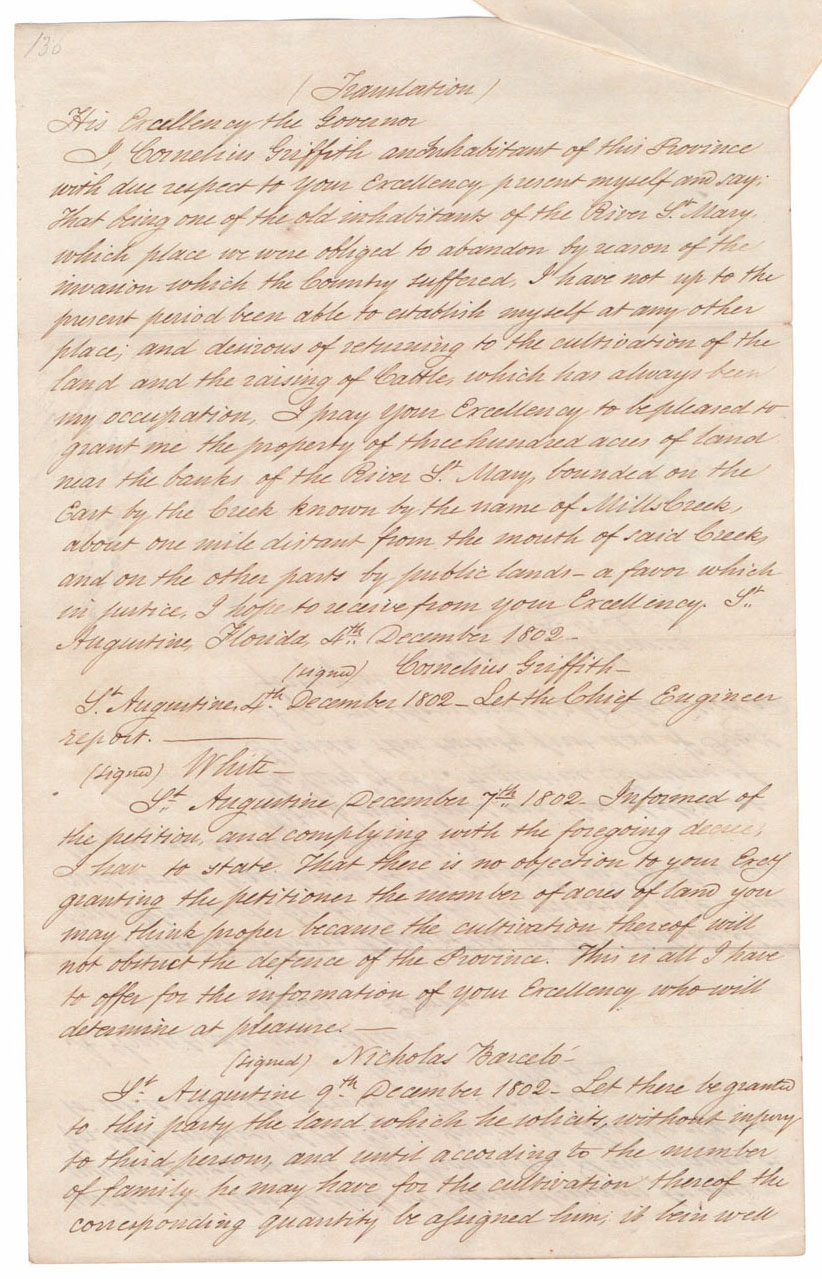 136
(Translation)
His Excellency the Governor
I, Cornelius Griffith an Inhabitant of this Province
with due respect to Your Excellency present myself and say;
That being one of the old inhabitants of the River St. Mary,
which place we were obliged to abandon by reason of the
invasion which the Country suffered, I have not up to the
present period been able to establish myself at any other
place; and desirous of returning to the cultivation of the
land and the raising of Cattle, which has always been
my occupation, I pray Your Excellency to be pleased to
grant me the property of three hundred acres of land
near the banks of the River St. Mary, bounded on the
East by the Creek known by the name of Mills Creek,
about one mile distant from the mouth of said Creek,
and on the other parts by public lands - a favor which
in justice, I hope to receive from your Excellency. St.
Augustine, Florida, 4th December 1802 -
(signed) Cornelius Griffith -
St. Augustine, 4th December 1802 - Let the Chief Engineer
report. ———
(signed) White -
St. Augustine December 7th 1802 - Informed of
the petition, and complying with the foregoing decree,
I hav to state. That there is no objection to your Excy
granting the petitioner the number of acres of land you
may think proper because the cultivation thereof will
not obstruct the defence of the Province. This is all I have
to offer for the information of your Excellency who will
determine at pleasure. —
(signed) Nicholas Barceló -
St. Augustine 9th December 1802 - Let there be granted
to this party the land which he solicits, without injury
to third persons, and until according to the number
of family he may have for the cultivation thereof the
corresponding quantity be assigned him; it bein well